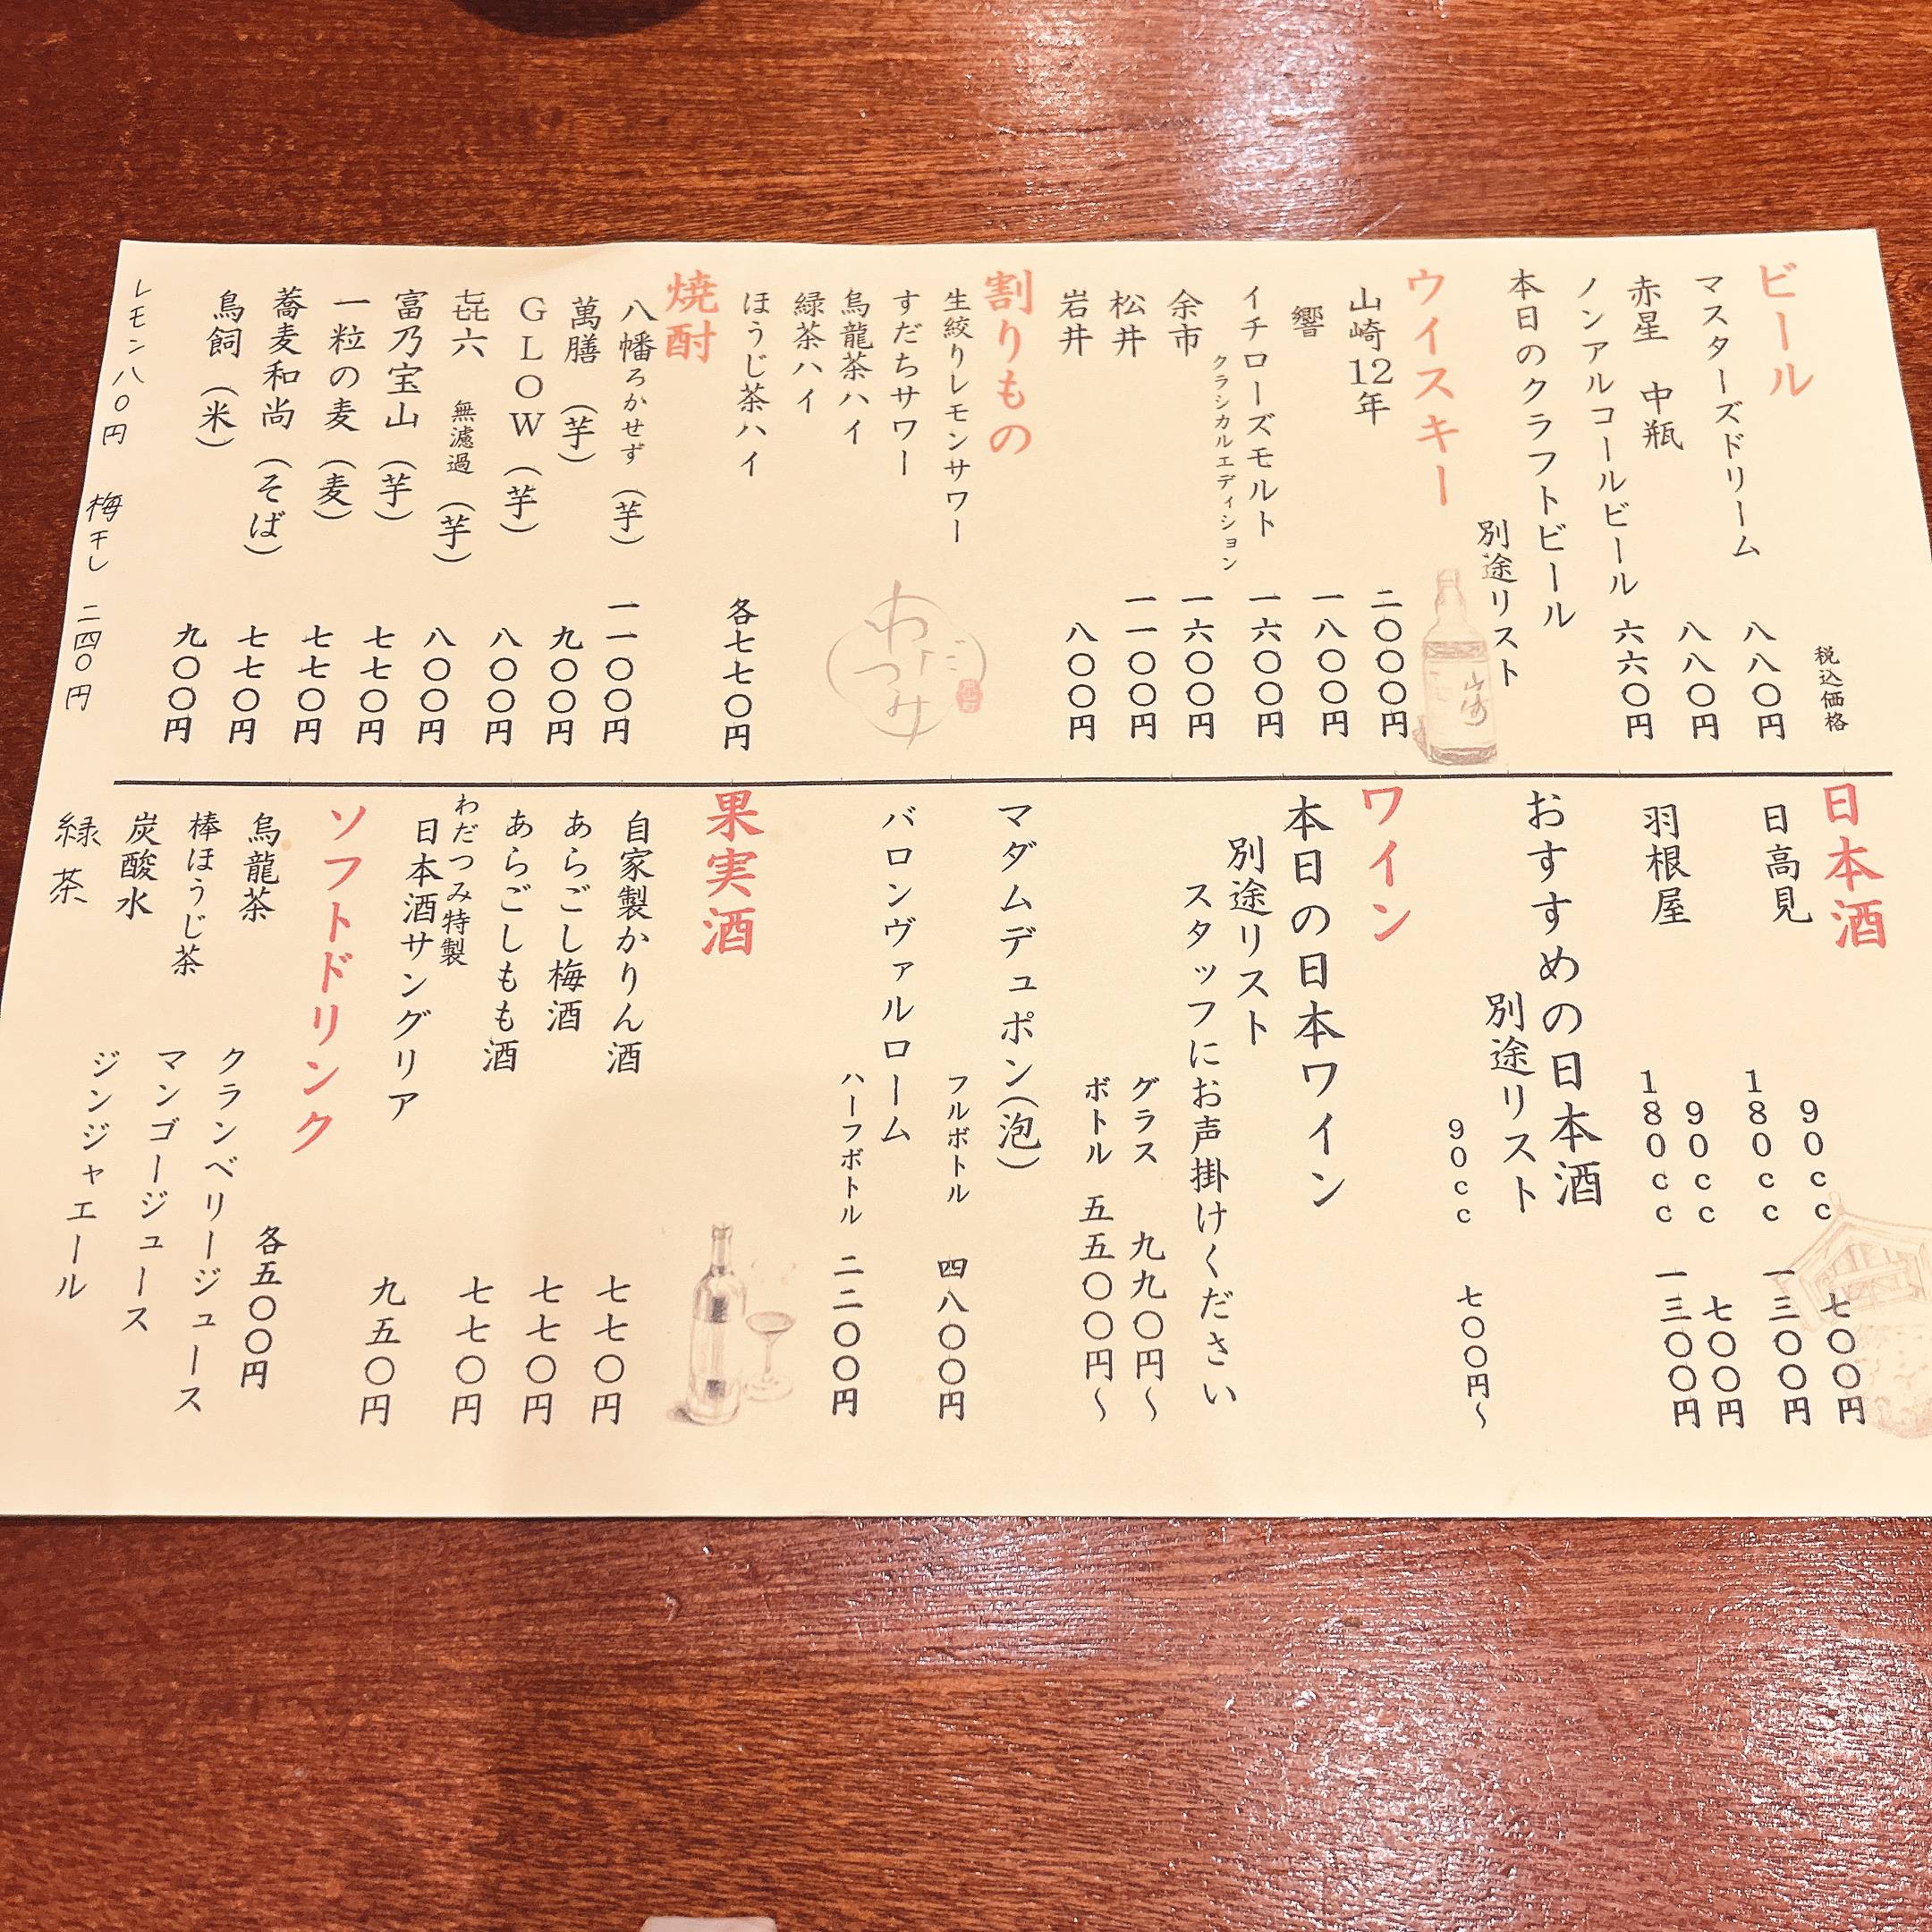 税込価格
ビール
マスターズドリーム 八八〇円
赤星 中瓶 八八〇円
ノンアルコールビール 六六〇円
本日のクラフトビール
別途リスト
ウイスキー
山崎12年 二〇〇〇円
響 一八〇〇円
イチローズモルト 一六〇〇円
クラシカルエディション
余市 一六〇〇円
松井 一一〇〇円
岩井 八〇〇円
山崎
割りもの
生絞りレモンサワー
すだちサワー
烏龍茶ハイ
緑茶ハイ
ほうじ茶ハイ 各七七〇円
わだつみ
焼酎
八幡ろかせず (芋) 一一〇〇円
萬膳 (芋) 九〇〇円
GLOW (芋) 八〇〇円
㐂六 無濾過 (芋) 八〇〇円
富乃宝山 (芋) 七七〇円
一粒の麦 (麦) 七七〇円
蕎麦和尚 (そば) 七七〇円
鳥飼 (米) 九〇〇円
レモン八〇円 梅干し 二四〇円
日本酒
日高見 90cc 七〇〇円
180cc 一三〇〇円
羽根屋 90cc 七〇〇円
180cc 一三〇〇円
おすすめの日本酒
別途リスト
90cc 七〇〇円〜
ワイン
本日の日本ワイン
別途リスト
スタッフにお声掛けください
グラス 九九〇円〜
ボトル 五五〇〇円〜
マダムデュポン(泡)
フルボトル 四八〇〇円
バロンヴァルローム
ハーフボトル 二二〇〇円
果実酒
自家製かりん酒 七七〇円
あらごし梅酒 七七〇円
あらごしもも酒 七七〇円
わだつみ特製
日本酒サングリア 九五〇円
ソフトドリンク
各五〇〇円
烏龍茶 クランベリージュース
棒ほうじ茶 マンゴージュース
炭酸水 ジンジャエール
緑茶